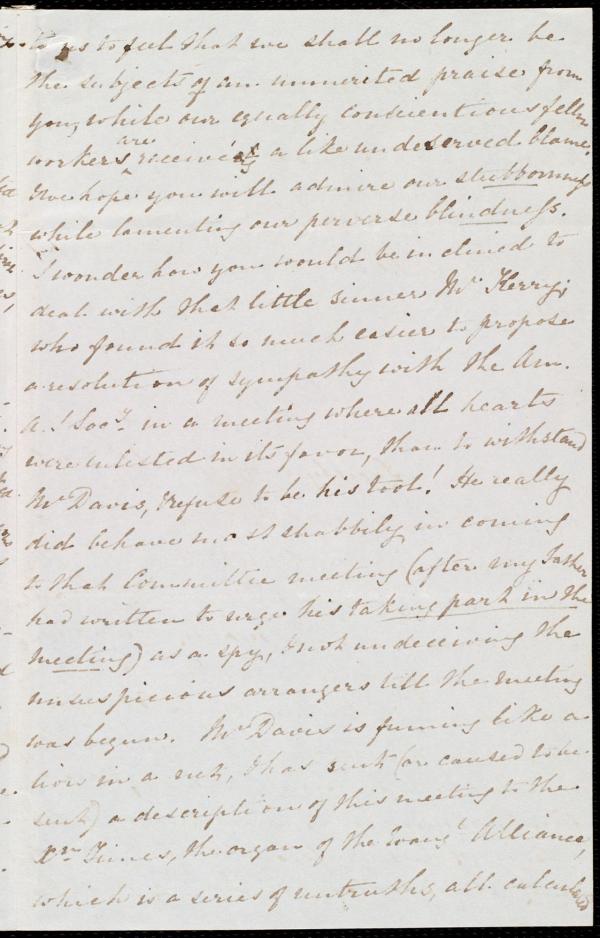 to us to feel that we shall no longer be
the subjects of an unmerited praise from
you, while our equally conscientious fellow
workers are receiving a like undeserved blame.
I we hope you will admire our stubbornness
while lamenting our perverse blindness.
I wonder how you would be inclined to
deal with that little sinner Mr. Kerry,
who found it so much easier to propose
a resolution of sympathy with the Am.
A. S. Socy. in a meeting where all hearts
were enlisted in its favor, than to withstand
Mr Davis, & refuse to be his tool! He really
did behave most shabbily in coming
to that Committee meeting (after my Father
had written to urge his taking part in the
meeting) as a spy, & not undeceiving the
unsuspicious arrangers till the meeting
was begun. Mr Davis is fuming like a
lion in a net, & has sent (or caused to be
sent) a description of this meeting to the
Xn Times, the organ of the Evangl Alliance,
which is a series of untruths, all calculated